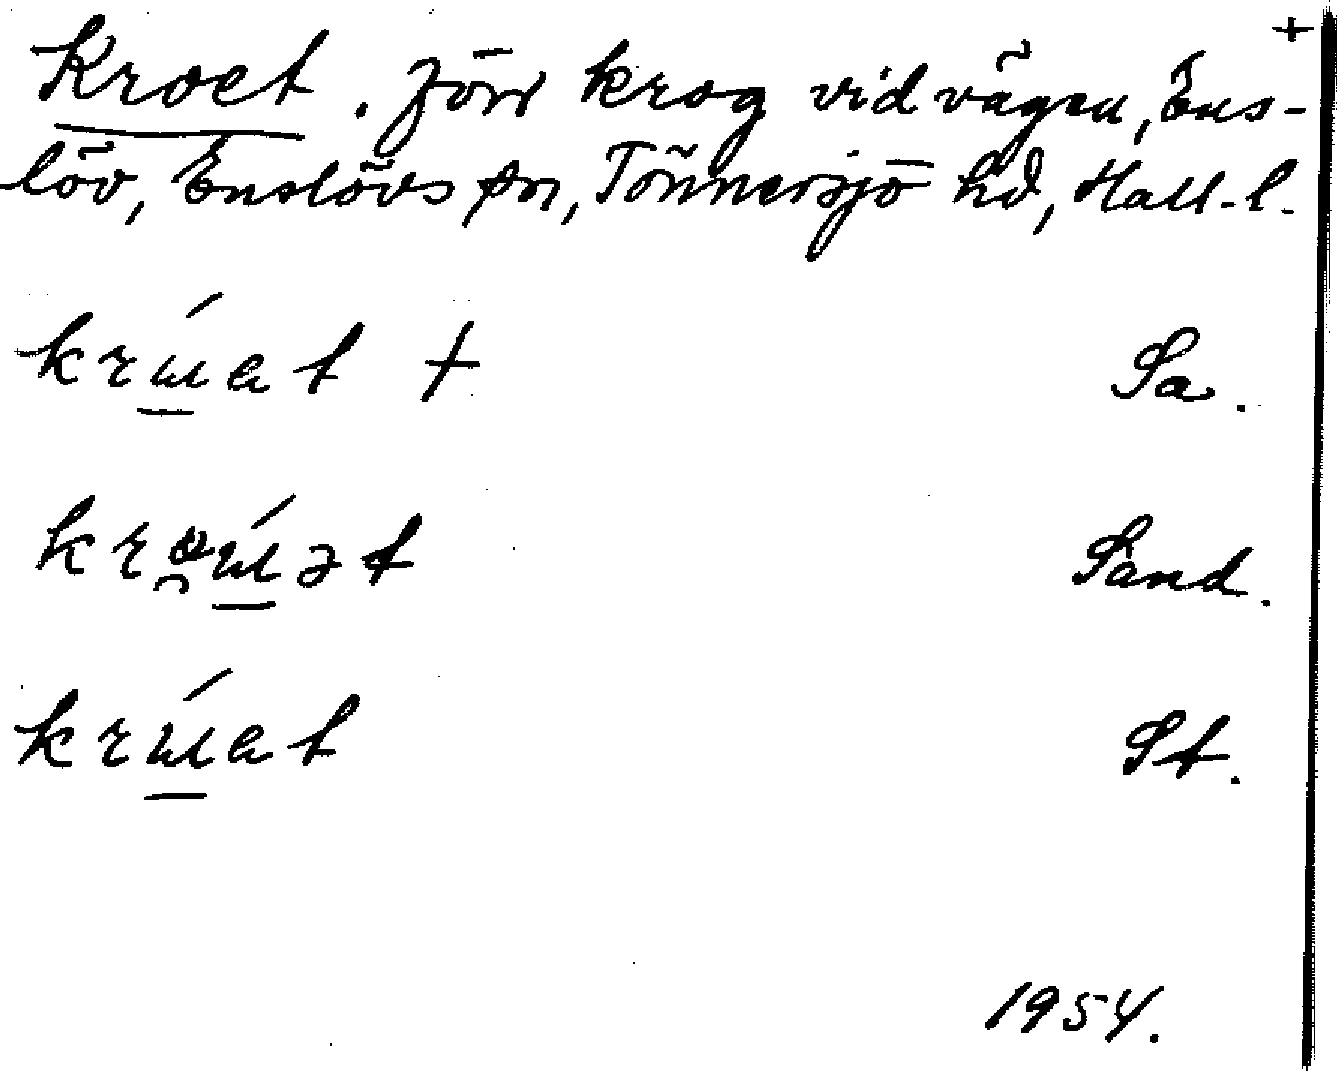 +
Kroet. Förr krog vid vägen, Ens-
löv, Enslövs sn, Tönnersjö hd, Hall. l.
krɯ́at + Sa.
krɯ́ət Sand.
krɯ́at St.
1954.